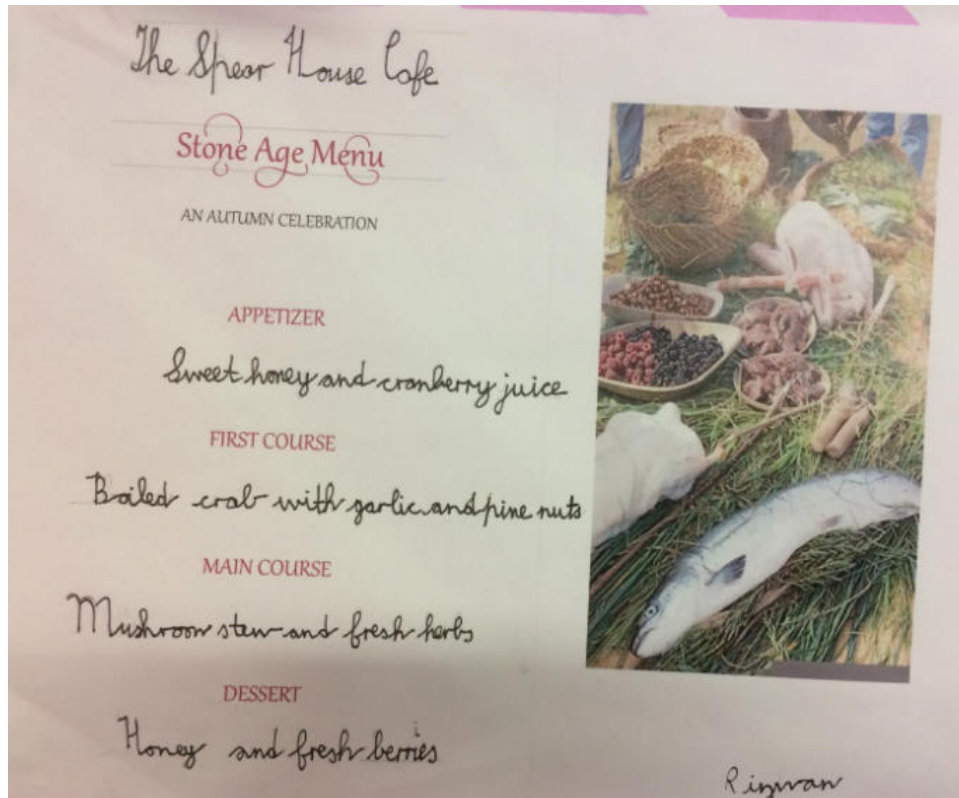 The Spear House Cafe
Stone Age Menu
AN AUTUMN CELEBRATION
APPETIZER
Sweet honey and cranberry juice
FIRST COURSE
Boiled crab with garlic and pine nuts
MAIN COURSE
Mushroom stew and fresh herbs
DESSERT
Honey and fresh berries
Rizwan